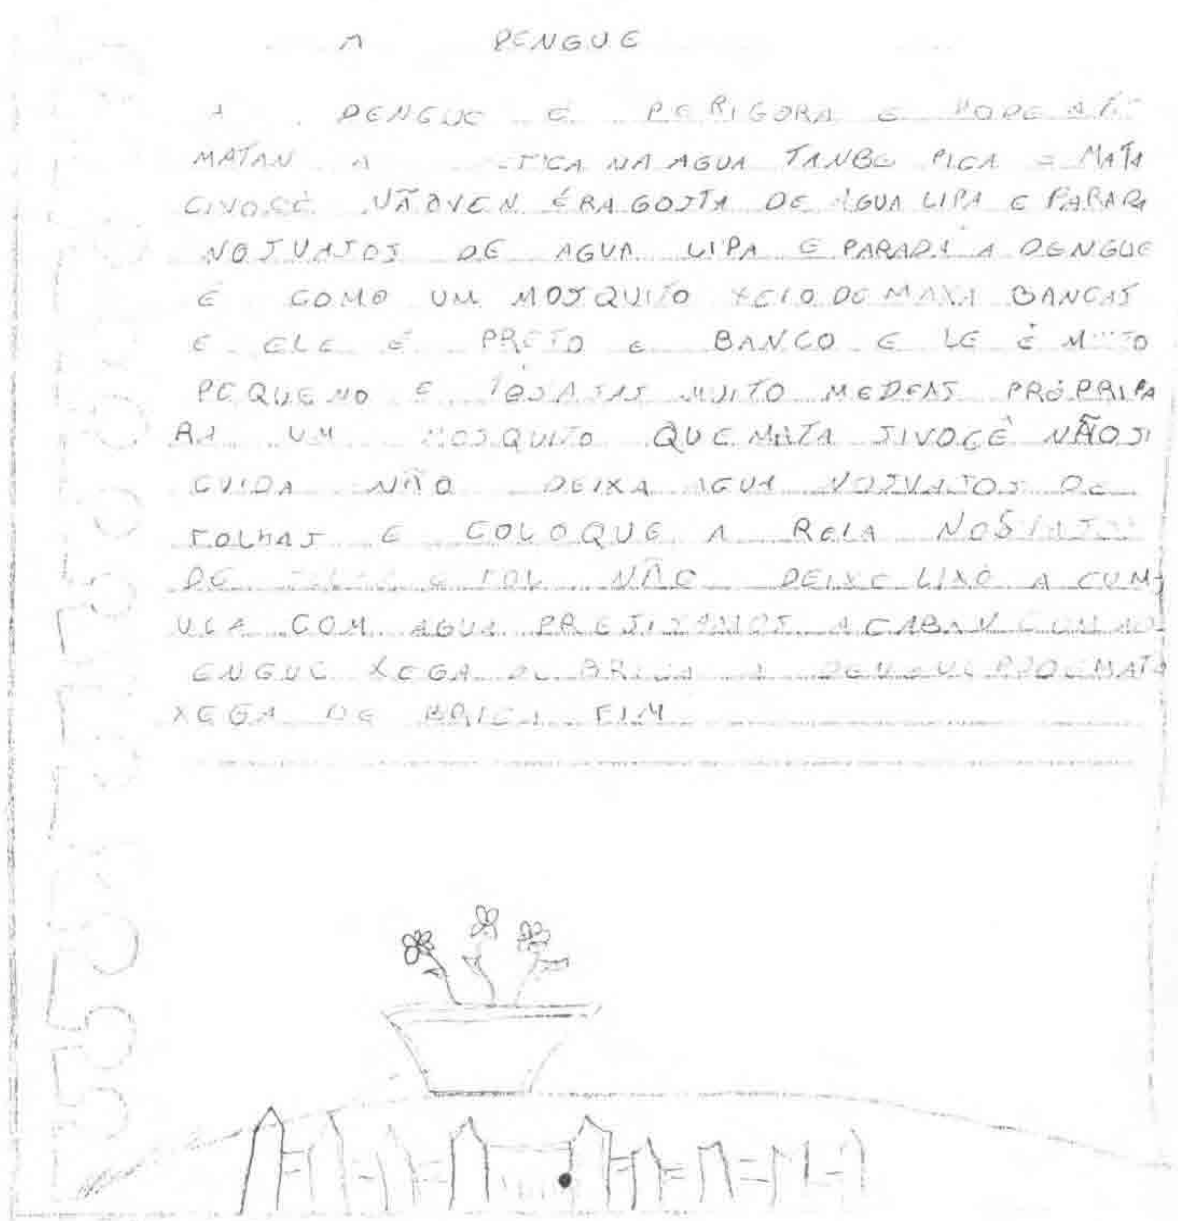 A DENGUE
A DENGUE É PERIGORA E PODE ATÉ
MATAN A FICA NA AGUA TANBE PICA E MATA
CIVOCÊ NÃO VEN ÉRA GOSTA DE AGUA LIPA E PARADA
NOS VASOS DE AGUA LIPA E PARADA A DENGUE
É COMO UM MOSQUITO XEIO DE MAXA BANCAS
E ELE É PRETO E BANCO E LE É MUITO
PEQUENO E MUITO MEDEAS PRÓPRIPA
RA UM MOSQUITO QUE MATA SIVOCÊ NÃO SI
CUIDA NÃO DEIXA AGUA NOSVASOS DE
FOLHAS E COLOQUE A RELA NOS VASOS
DE NÃO DEIXE LIXO A CUM-
ULA COM AGUA PRESISAMOS ACABAN COM AD
ENGUE XEGA DE BRICA A DENGUE MATA
XEGA DE BRICA FIM